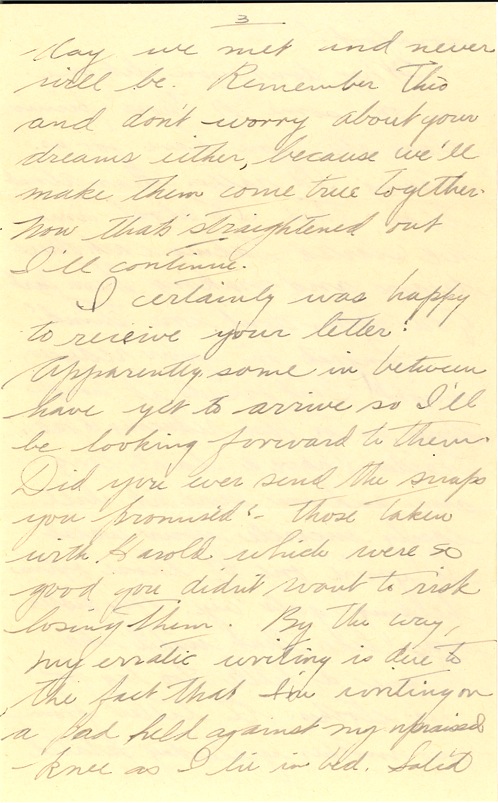 3
day we met and never
will be. Remember this
and don't worry about your
dreams either, because we'll
make them come true together.
Now that's straightened out
I'll continue.
I certainly was happy
to receive your letter.
Apparently some in between
have yet to arrive so I'll
be looking forward to them.
Did you ever send the snaps
you promised - those taken
with Harold which were so
good you didn't want to risk
losing them. By the way,
my erratic writing is due to
the fact that I'm writing on
a pad held against my upraised
knee as I lie in bed.